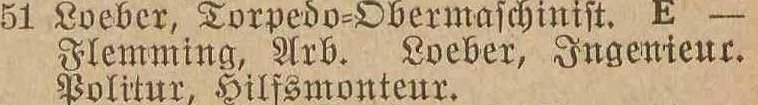 51 Loeber, Torpedo-Obermaschinist. E —
Flemming, Arb. Loeber, Ingenieur.
Politur, Hilfsmonteur.